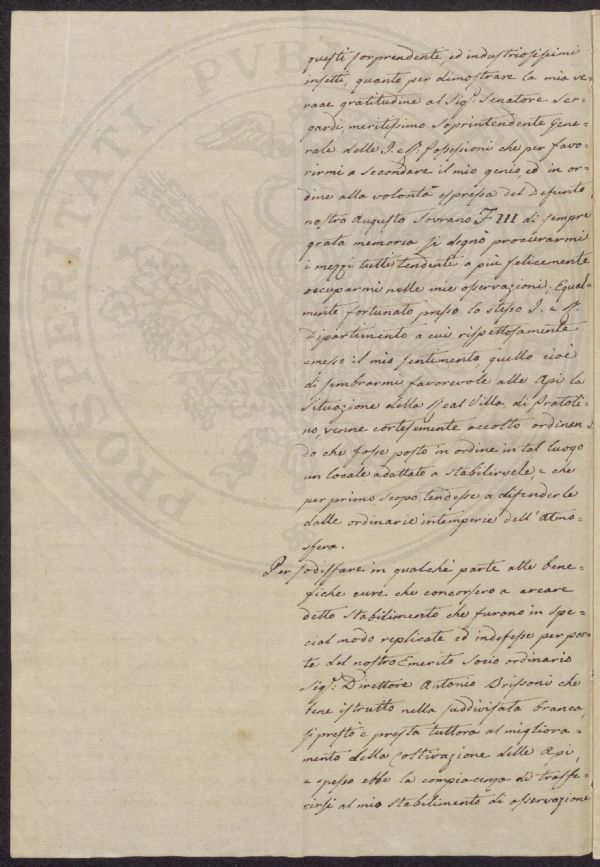 questi sorprendenti, ed industriosissimi
insetti, quanto per dimostrare la mia ve=
race gratitudine al Sig.r Senatore Ser=
gardi, meritissimo Soprintendente Gene=
rale delle I. e R. Possessioni che per favo=
rirmi a secondare il mio genio ed in or=
dine alla volontà espressa del Defunto
nostro Augusto Sovrano F III di sempre
grata memoria si degnò procurarmi
i mezzi tutti tendenti a più felicemente
occuparmi nelle mie osservazioni; Equal=
mente fortunato presso lo stesso I. e R.
Dipartimento a cui rispettosamente
emesso il mio sentimento quello cioè
di sembrarmi favorevole alle Api la
Situazione della Real Villa di Pratoli=
no, venne cortesemente accolto ordinen
do che fosse posto in ordine in tal luogo
un locale adattato a stabilirvele, e che
per primo scopo tendesse a difenderle
dalle ordinarie intemperie dell'Atmo=
sfera.
Per sodisfare in qualche parte alle bene=
fiche cure che concorsero a creare
detto Stabilimento che furono in spe=
cial modo replicate ed indefesse per par=
te del nostro Emerito Socio ordinario
Sig.r Direttore Antonio Brissoni che
bene istruito nella suddivisata branca
si prestò e presta tuttora al migliora=
mento della Coltivazione delle Api,
e spesso ebbe la compiacenza di trasfe=
rirsi al mio Stabilimento di osservazione
PVBL
PROSPERITATI